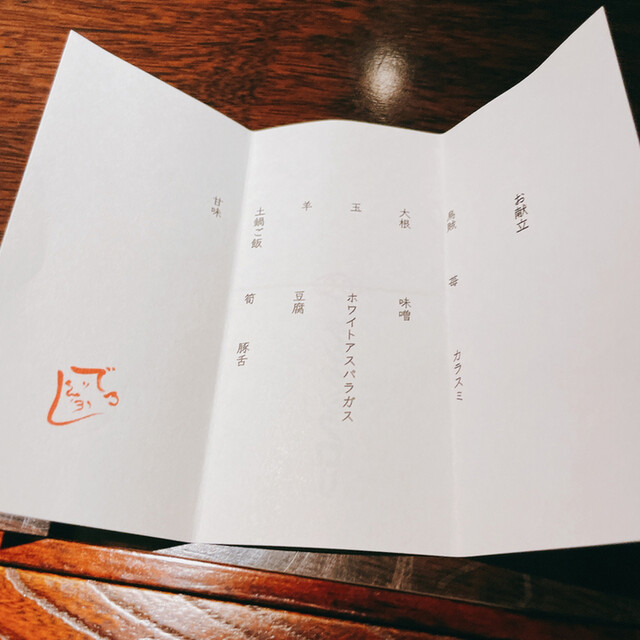 お献立
烏賊 苺 カラスミ
大根 味噌
玉 ホワイトアスパラガス
羊 豆腐
土鍋ご飯 筍 豚舌
甘味